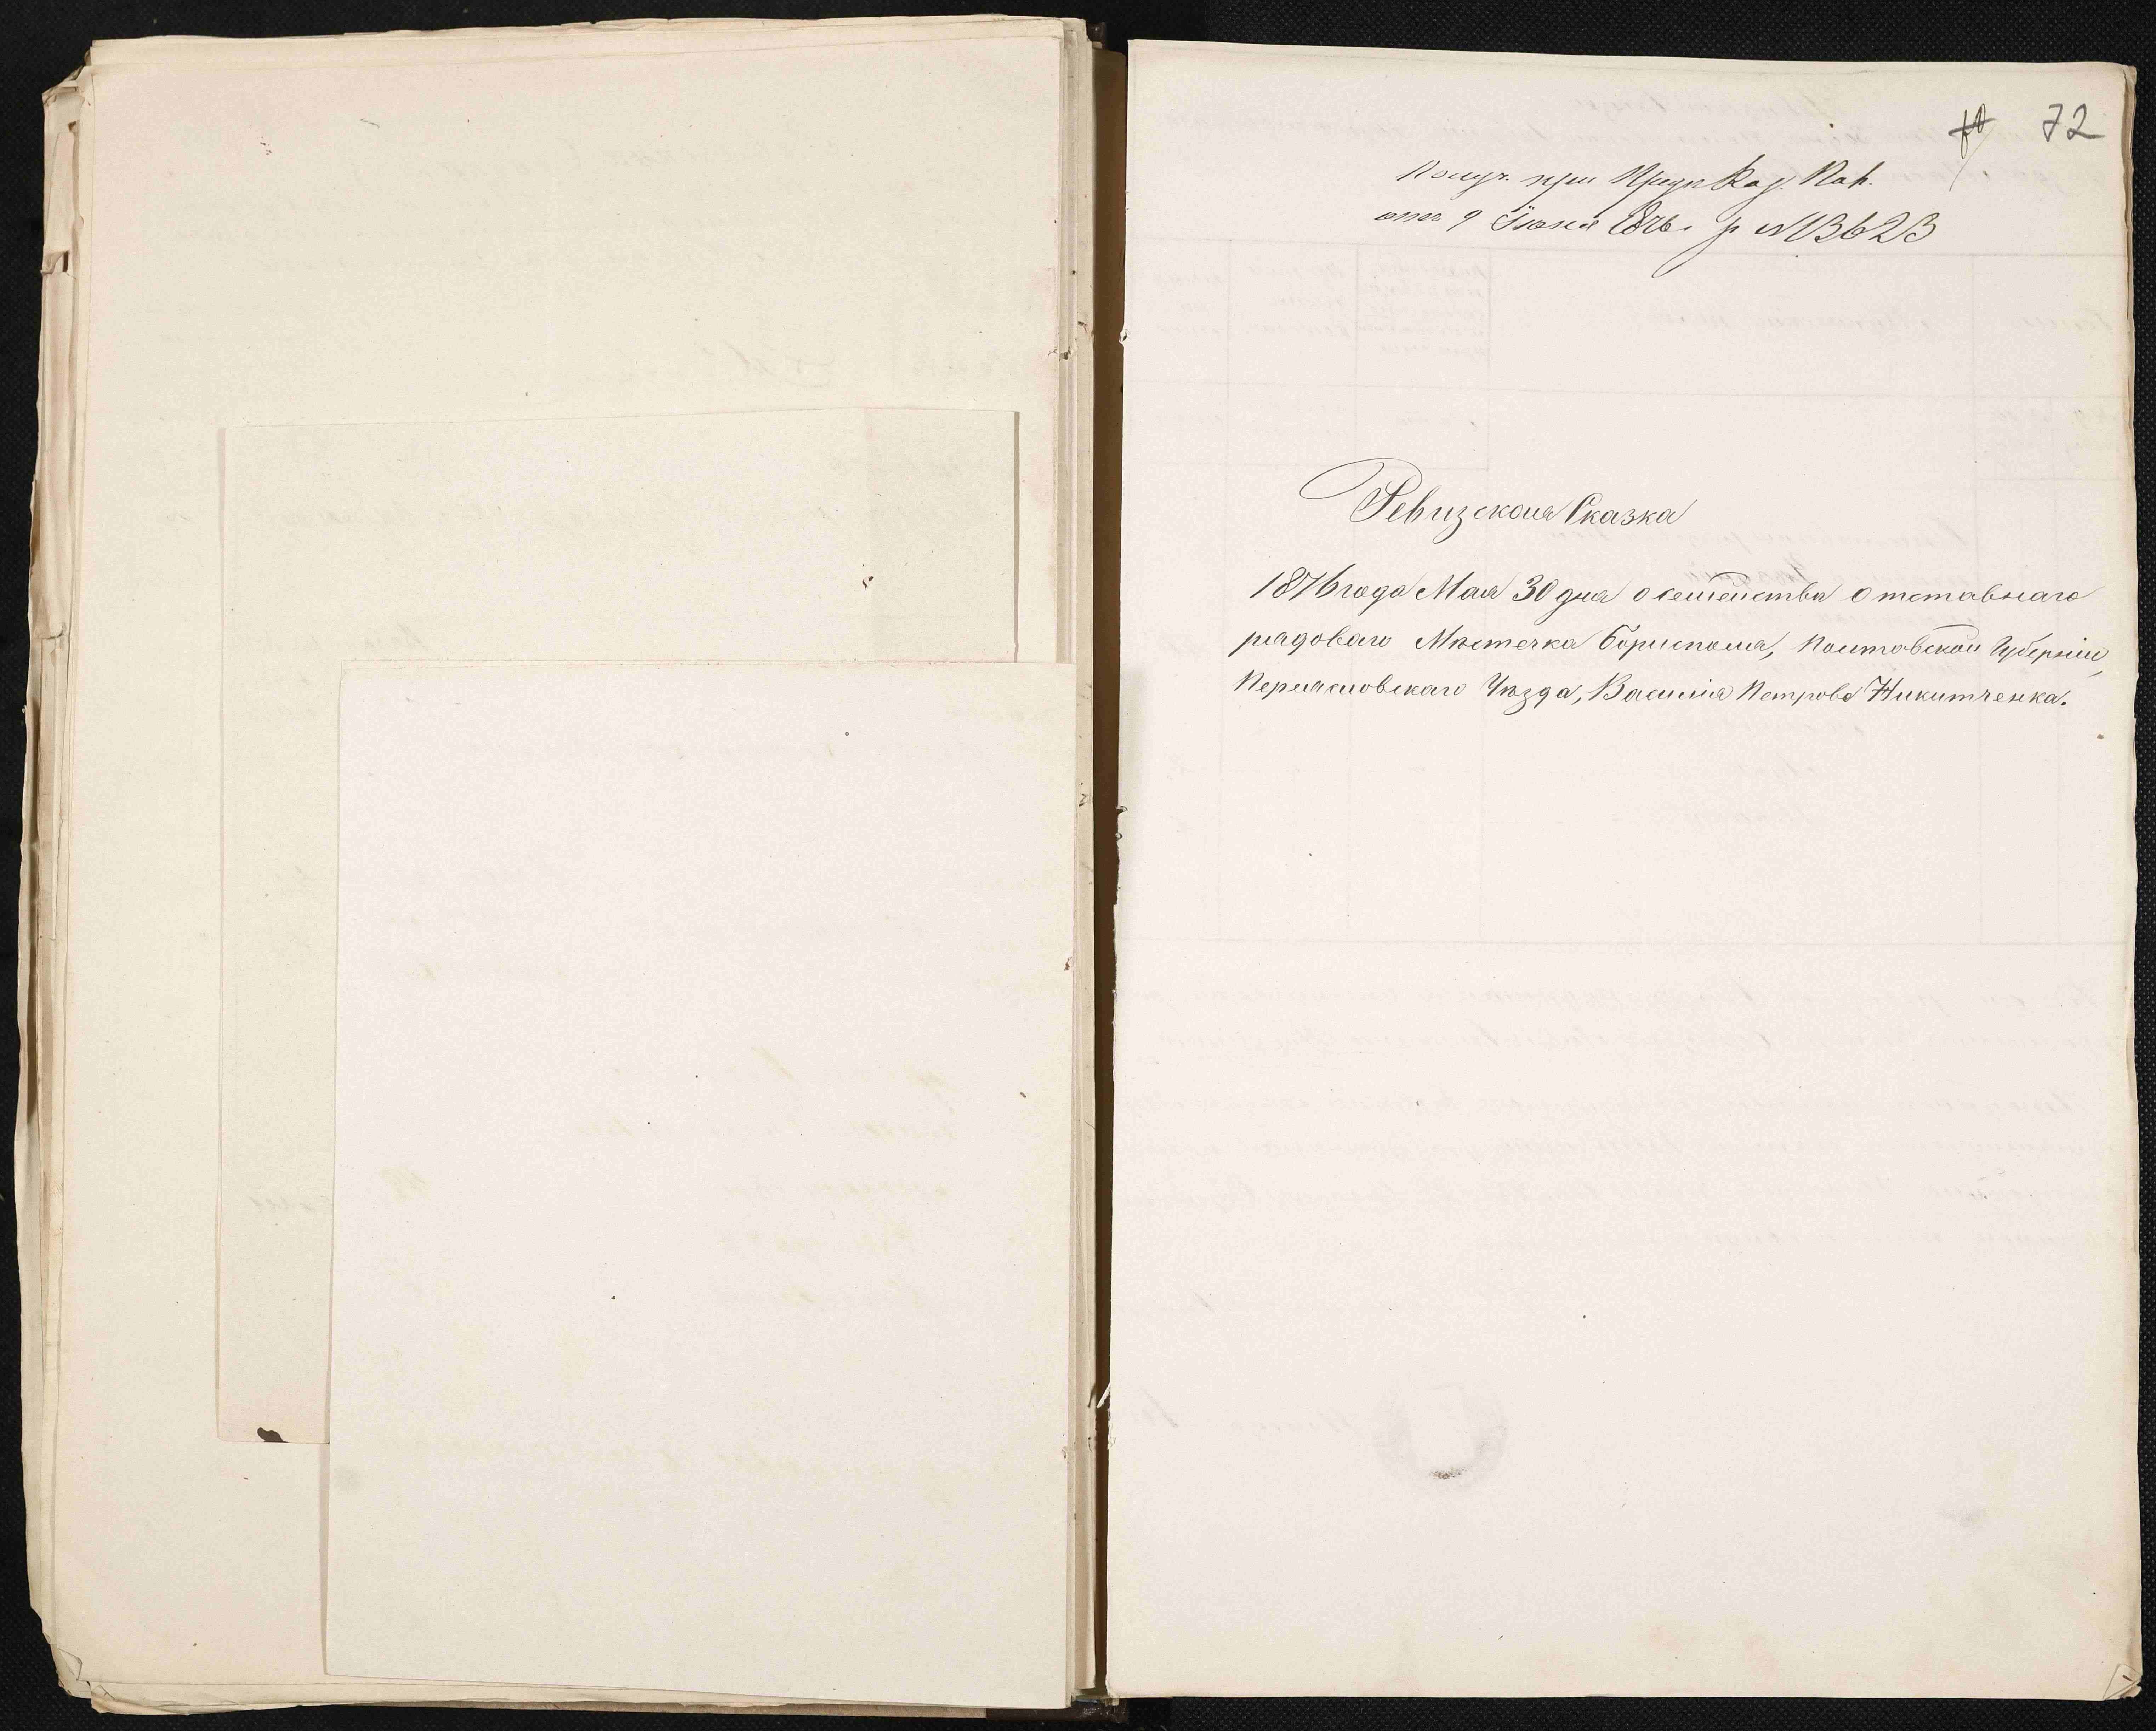 72
Получ. при Предп. Каз. Пал.
от 9 Іюня 1876 г. за № 13623
Ревизская Сказка
1876 года Мая 30 дня о семействѣ отставнаго
рядоваго Мѣстечка Борисполя, Полтавской Губерніи,
Переясловскаго Уѣзда, Василія Петрова Никитченка.